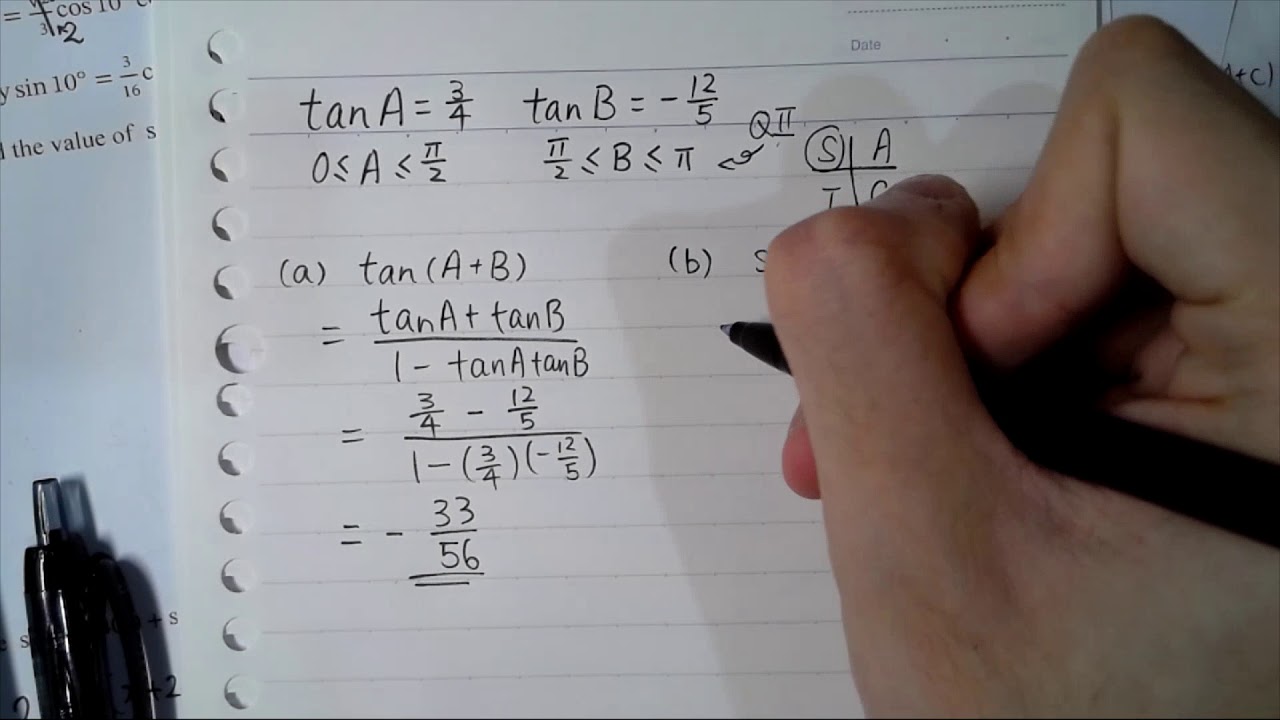 cos 10°
3
2
y sin 10° = 3/16 c
the value of s
Date
tan A = 3/4 tan B = - 12/5
QII
0 ≤ A ≤ π/2 π/2 ≤ B ≤ π
S A
T C
(a) tan(A+B) (b) s
= tanA + tanB / 1 - tanA tanB
= 3/4 - 12/5 / 1 - (3/4)(-12/5)
= - 33/56
+ s
+2
2
+C)